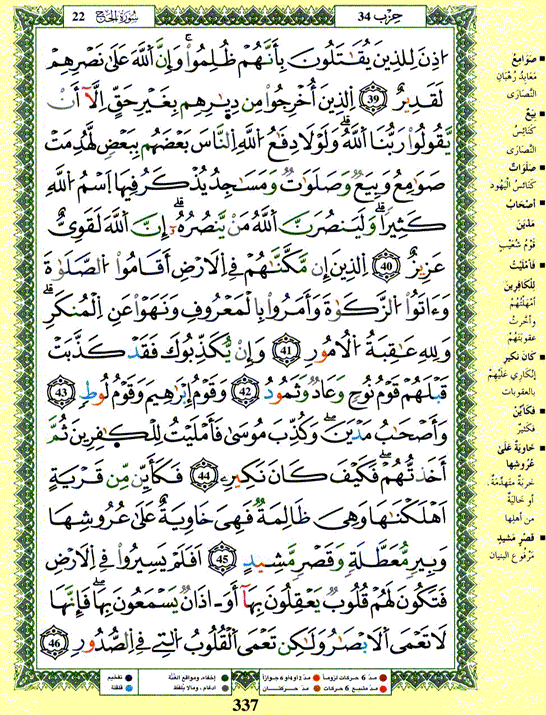 حِزْب 34
سُورَةُ الحَجّ 22
اذِنَ لِلذِينَ يُقَٰتَلُونَ بِأَنَّهُمْ ظُلِمُواْ وَإِنَّ اَللَّهَ عَلَىٰ نَصْرِهِمْ
لَقَدِيرٌ 39 اِلذِينَ أُخْرِجُواْ مِن دِيٰرِهِم بِغَيْرِ حَقٍّ اِلَّآ أَنْ
يَّقُولُواْ رَبُّنَا اَللَّهُ وَلَوْلَا دِفَٰعُ اُللَّهِ اِلنَّاسَ بَعْضَهُم بِبَعْضٍ لَّهُدِمَتْ
صَوَٰمِعُ وَبِيَعٌ وَصَلَوَٰتٌ وَمَسَٰجِدُ يُذْكَرُ فِيهَا اَسْمُ اُللَّهِ
كَثِيراً وَلَيَنصُرَنَّ اَللَّهُ مَنْ يَّنصُرُهُۥ إِنَّ اَللَّهَ لَقَوِيٌّ
عَزِيزٌ 40 اِلذِينَ إِن مَّكَّنَّٰهُمْ فِي اِلَارْضِ أَقَامُواْ اُلصَّلَوٰةَ
وَءَاتَوُاْ اُلزَّكَوٰةَ وَأَمَرُواْ بِالْمَعْرُوفِ وَنَهَوْاْ عَنِ اِلْمُنكَرِ
وَلِلهِ عَٰقِبَةُ اُلُامُورِ 41 وَإِنْ يُّكَذِّبُوكَ فَقَدْ كَذَّبَتْ
قَبْلَهُمْ قَوْمُ نُوحٍ وَعَادٌ وَثَمُودُ 42 وَقَوْمُ إِبْرَٰهِيمَ وَقَوْمُ لُوطٍ 43
وَأَصْحَٰبُ مَدْيَنَ وَكُذِّبَ مُوسَىٰ فَأَمْلَيْتُ لِلْكٰفِرِينَ ثُمَّ
أَخَذتُّهُمْ فَكَيْفَ كَانَ نَكِيرِۦ 44 فَكَأَيِّن مِّن قَرْيَةٍ
اَهْلَكْنَٰهَا وَهِيَ ظَالِمَةٌ فَهِيَ خَاوِيَةٌ عَلَىٰ عُرُوشِهَا
وَبِيرٍ مُّعَطَّلَةٍ وَقَصْرٍ مَّشِيدٍ 45 اَفَلَمْ يَسِيرُواْ فِي اِلَارْضِ
فَتَكُونَ لَهُمْ قُلُوبٌ يَعْقِلُونَ بِهَآ أَوَ ـ اذَانٌ يَسْمَعُونَ بِهَا فَإِنَّهَا
لَا تَعْمَى اَلَابْصَٰرُ وَلَٰكِن تَعْمَى اَلْقُلُوبُ اُلتِي فِي اِلصُّدُورِ 46
صَوَامِعُ
مَعَابِدُ رُهْبَانِ
النَّصَارَى
بِيَعٌ
كَنَائِسُ
النَّصَارَى
صَلَوَاتٌ
كَنَائِسُ الْيَهُودِ
أصْحَابُ
مَدْيَنَ
قَوْمُ شُعَيْبٍ
فَأَمْلَيْتُ
لِلْكَافِرِينَ
أَمْهَلْتُهُمْ
وأخّرتُ
عقوبتَهُمْ
كَانَ نَكِيرِ
إنْكَارِي عَلَيْهِمْ
بالعقوبات
فَكَأَيِّنْ
فَكَثِيرٌ
خَاوِيَةٌ عَلَى
عُرُوشِهَا
خَرِبَةٌ مُتَهَدِّمَةٌ،
أو خَالِيَةٌ
من أهلِها
قَصْرٍ مَشِيدٍ
مَرْفُوعِ البنيان
مدّ 6 حركات لزوماً
مدّ 2 أو 4 أو 6 جوازاً
إخفاء، ومواقع الغُنَّة
تفخيم
مدّ مشبع 6 حركات
مدّ حركتــان
ادغام، وما لا يُلفظ
قلقلة
337